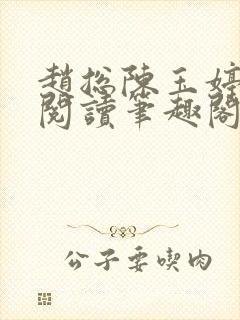 趙總陳玉婷
閱讀筆趣閣
公子要喫肉